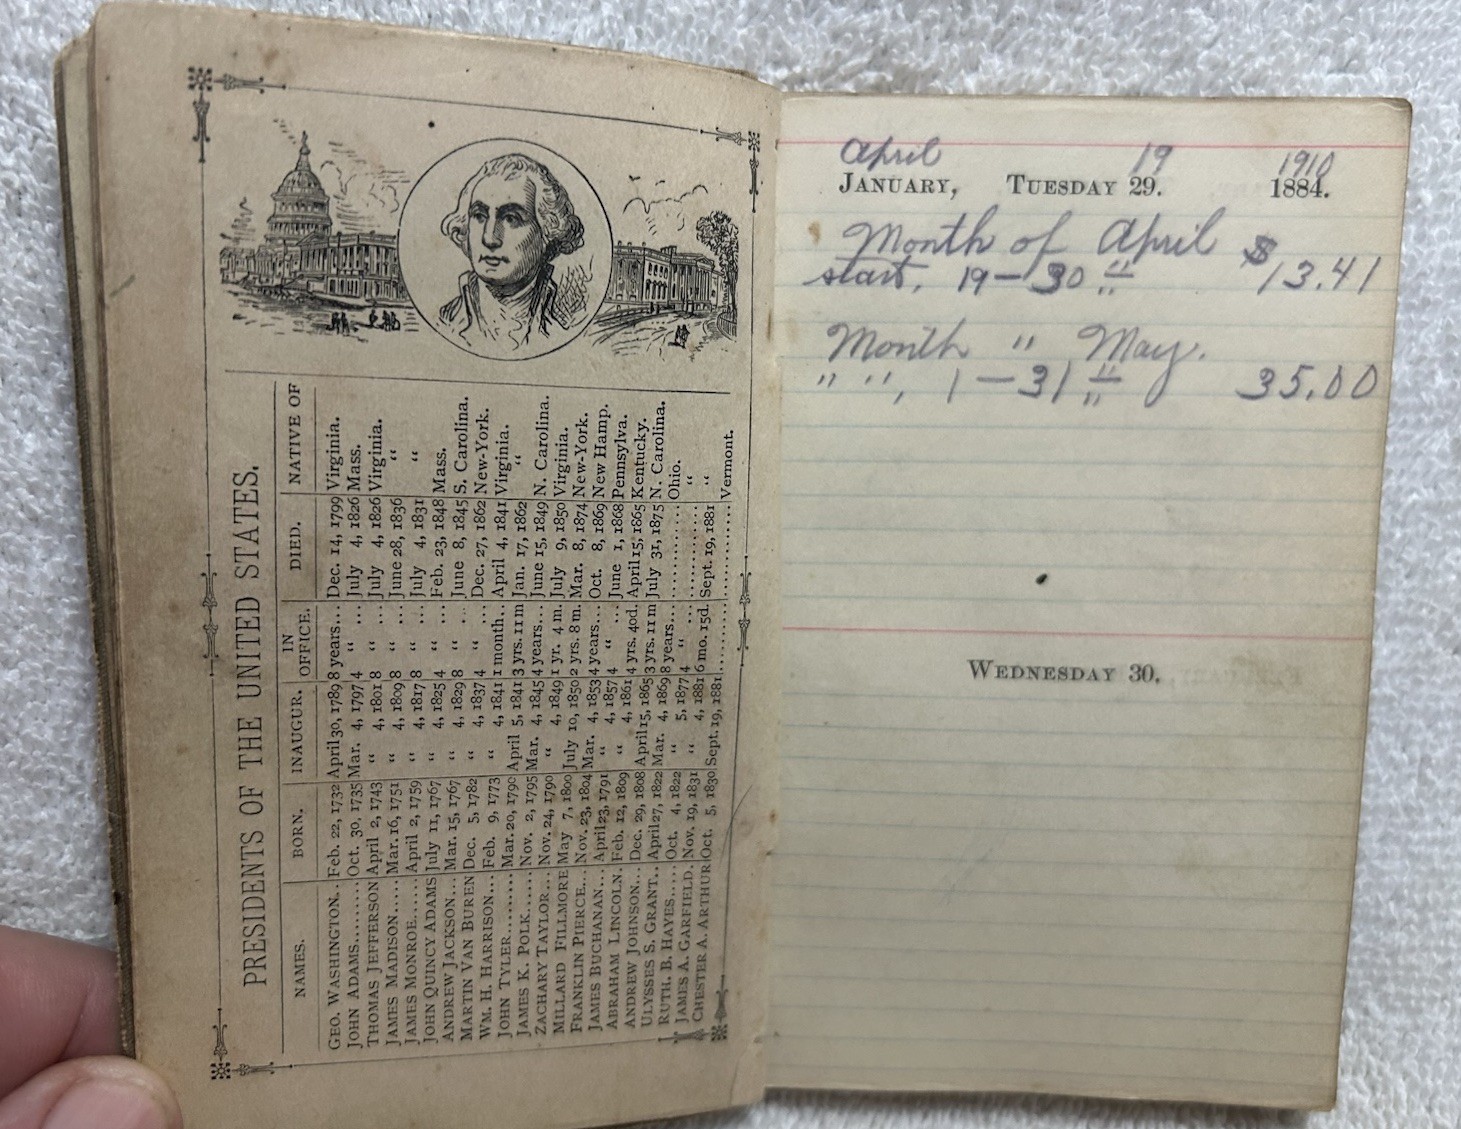 PRESIDENTS OF THE UNITED STATES.
NAMES. BORN. INAUGUR. IN OFFICE. DIED. NATIVE OF
GEO. WASHINGTON.. Feb. 22, 1732 April 30, 1789 8 years... Dec. 14, 1799 Virginia.
JOHN ADAMS........ Oct. 30, 1735 Mar. 4, 1797 4 " ... July 4, 1826 Mass.
THOMAS JEFFERSON April 2, 1743 " 4, 1801 8 " ... July 4, 1826 Virginia.
JAMES MADISON..... Mar. 16, 1751 " 4, 1809 8 " ... June 28, 1836 "
JAMES MONROE..... April 2, 1759 " 4, 1817 8 " ... July 4, 1831 "
JOHN QUINCY ADAMS July 11, 1767 " 4, 1825 4 " ... Feb. 23, 1848 Mass.
ANDREW JACKSON... Mar. 15, 1767 " 4, 1829 8 " ... June 8, 1845 S. Carolina.
MARTIN VAN BUREN Dec. 5, 1782 " 4, 1837 4 " ... Dec. 27, 1862 New-York.
WM. H. HARRISON... Feb. 9, 1773 " 4, 1841 1 month.. April 4, 1841 Virginia.
JOHN TYLER........ Mar. 20, 1790 April 5, 1841 3 yrs. 11 m Jan. 17, 1862 "
JAMES K. POLK...... Nov. 2, 1795 Mar. 4, 1845 4 years... June 15, 1849 N. Carolina.
ZACHARY TAYLOR... Nov. 24, 1790 " 4, 1849 1 yr. 4 m. July 9, 1850 Virginia.
MILLARD FILLMORE May 7, 1800 July 10, 1850 2 yrs. 8 m. Mar. 8, 1874 New-York.
FRANKLIN PIERCE... Nov. 23, 1804 Mar. 4, 1853 4 years... Oct. 8, 1869 New Hamp.
JAMES BUCHANAN... April 23, 1791 " 4, 1857 4 " ... June 1, 1868 Pennsylva.
ABRAHAM LINCOLN. Feb. 12, 1809 " 4, 1861 4 yrs. 40d. April 15, 1865 Kentucky.
ANDREW JOHNSON... Dec. 29, 1808 April 15, 1865 3 yrs. 11 m July 31, 1875 N. Carolina.
ULYSSES S. GRANT.. April 27, 1822 Mar. 4, 1869 8 years... .......... Ohio.
RUTH. B. HAYES..... Oct. 4, 1822 " 5, 1877 4 " ... .......... "
JAMES A. GARFIELD. Nov. 19, 1831 " 4, 1881 6 mo. 15d. Sept. 19, 1881 "
CHESTER A. ARTHUR Oct. 5, 1830 Sept. 19, 1881 .......... .......... Vermont.
April 19 1910
JANUARY, TUESDAY 29. 1884.
Month of April $
start, 19-30 " 13.41
Month " May.
" ", 1-31 " 35.00
WEDNESDAY 30.